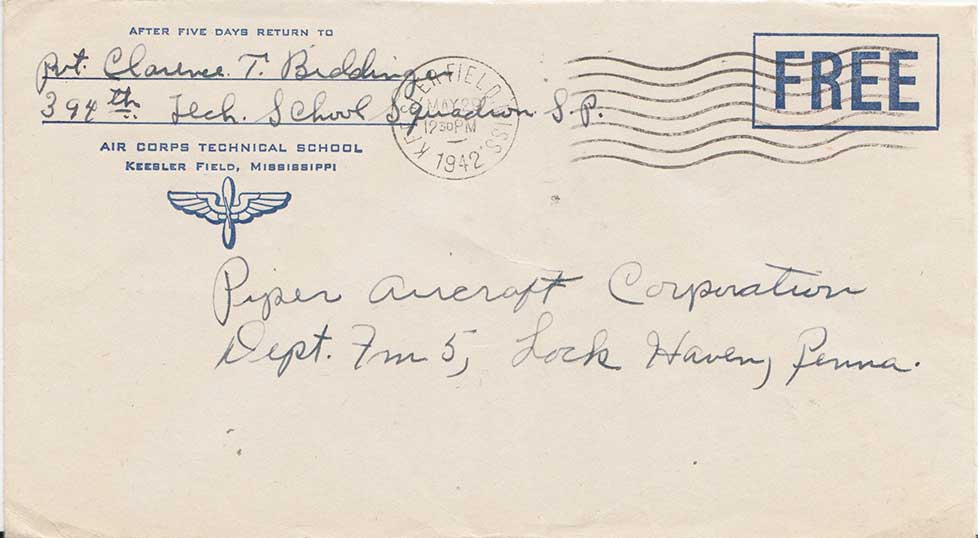 AFTER FIVE DAYS RETURN TO
Pvt. Clarence T. Biddinger
394th Tech. School Squadron S.P.
AIR CORPS TECHNICAL SCHOOL
KEESLER FIELD, MISSISSIPPI
KEESLER FIELD, MISS.
MAY 29
12 30 PM
1942
FREE
Piper Aircraft Corporation
Dept. Fm 5, Lock Haven, Penna.